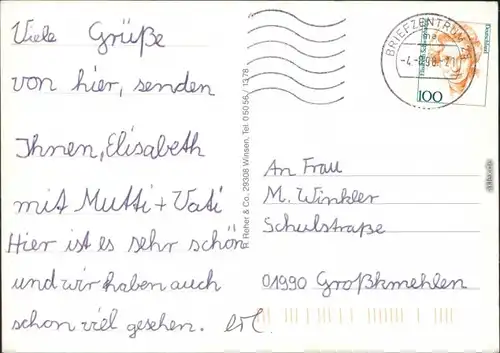 Viele Grüße
von hier, senden
Ihnen, Elisabeth
mit Mutti + Vati
Hier ist es sehr schön
und wir haben auch
schon viel gesehen.
R. Reher & Co., 29308 Winsen, Tel. 05056 / 1378
BRIEFZENTRUM 29
100
Deutschland
An Frau
M. Winkler
Schulstraße
01990 Großkmehlen